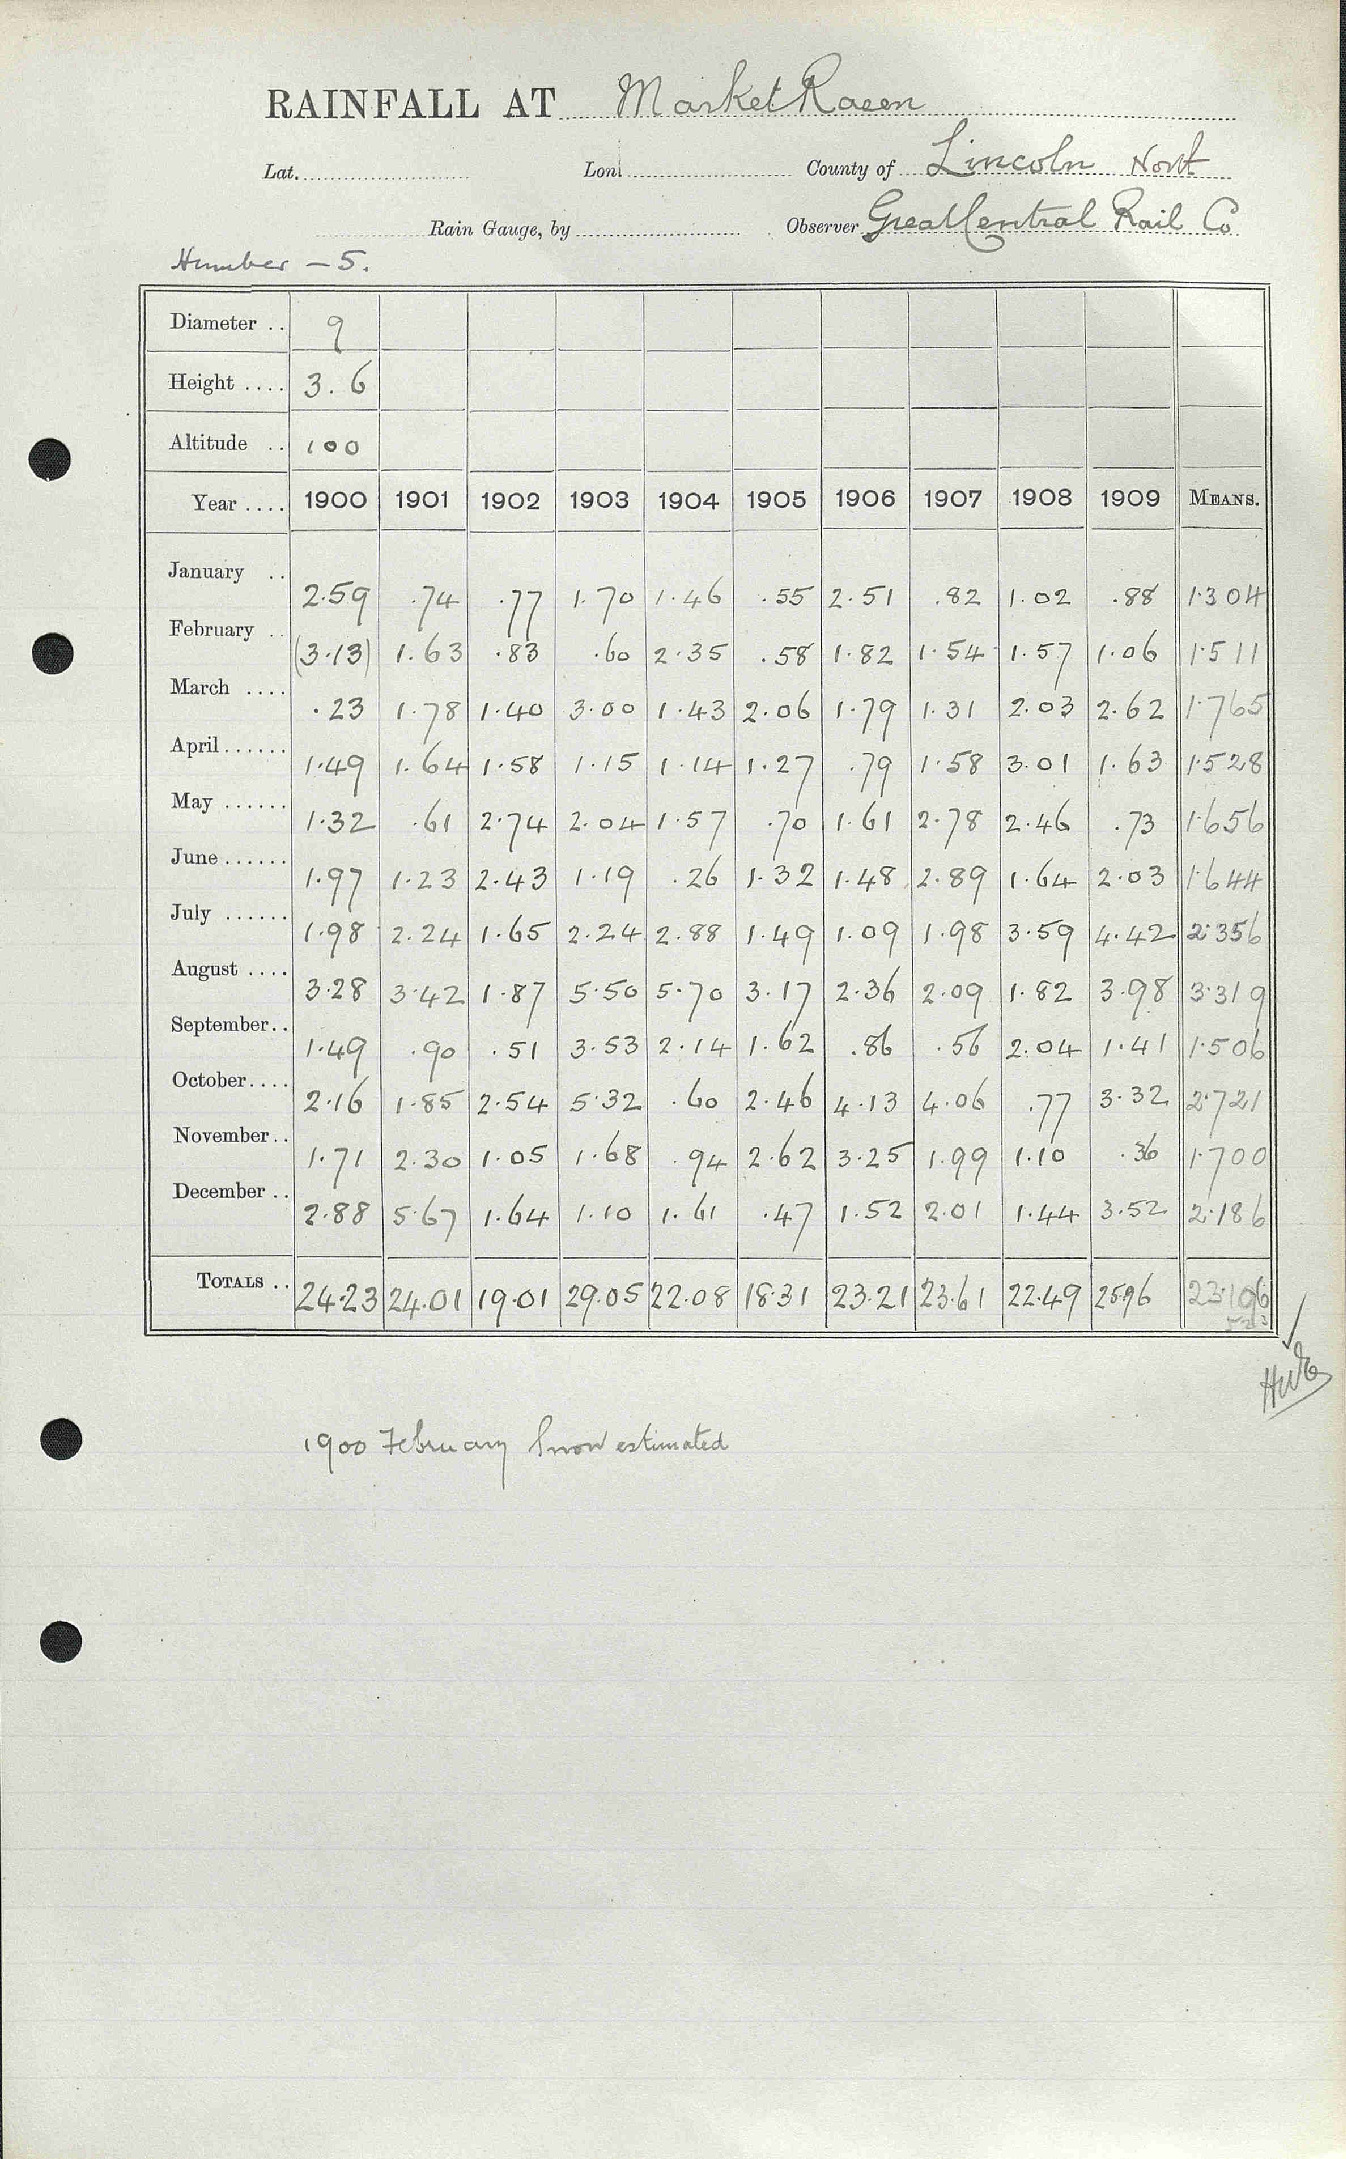 RAINFALL AT Market Rasen
Lat. Lon. County of Lincoln North
Rain Gauge, by Observer Great Central Rail Co
Humber - 5.
Diameter .. 9
Height .... 3.6
Altitude .. 100
Year .... 1900 1901 1902 1903 1904 1905 1906 1907 1908 1909 MEANS.
January .. 2.59 .74 .77 1.70 1.46 .55 2.51 .82 1.02 .88 1.304
February .. (3.13) 1.63 .83 .60 2.35 .58 1.82 1.54 1.57 1.06 1.511
March .... .23 1.78 1.40 3.00 1.43 2.06 1.79 1.31 2.03 2.62 1.765
April ...... 1.49 1.64 1.58 1.15 1.14 1.27 .79 1.58 3.01 1.63 1.528
May ...... 1.32 .61 2.74 2.04 1.57 .70 1.61 2.78 2.46 .73 1.656
June ...... 1.97 1.23 2.43 1.19 .26 1.32 1.48 2.89 1.64 2.03 1.644
July ...... 1.98 2.24 1.65 2.24 2.88 1.49 1.09 1.98 3.59 4.42 2.356
August .... 3.28 3.42 1.87 5.50 5.70 3.17 2.36 2.09 1.82 3.98 3.319
September .. 1.49 .90 .51 3.53 2.14 1.62 .86 .56 2.04 1.41 1.506
October .... 2.16 1.85 2.54 5.32 .60 2.46 4.13 4.06 .77 3.32 2.721
November .. 1.71 2.30 1.05 1.68 .94 2.62 3.25 1.99 1.10 .36 1.700
December .. 2.88 5.67 1.64 1.10 1.61 .47 1.52 2.01 1.44 3.52 2.186
TOTALS .. 24.23 24.01 19.01 29.05 22.08 18.31 23.21 23.61 22.49 25.96 23.196
1900 February Snow estimated